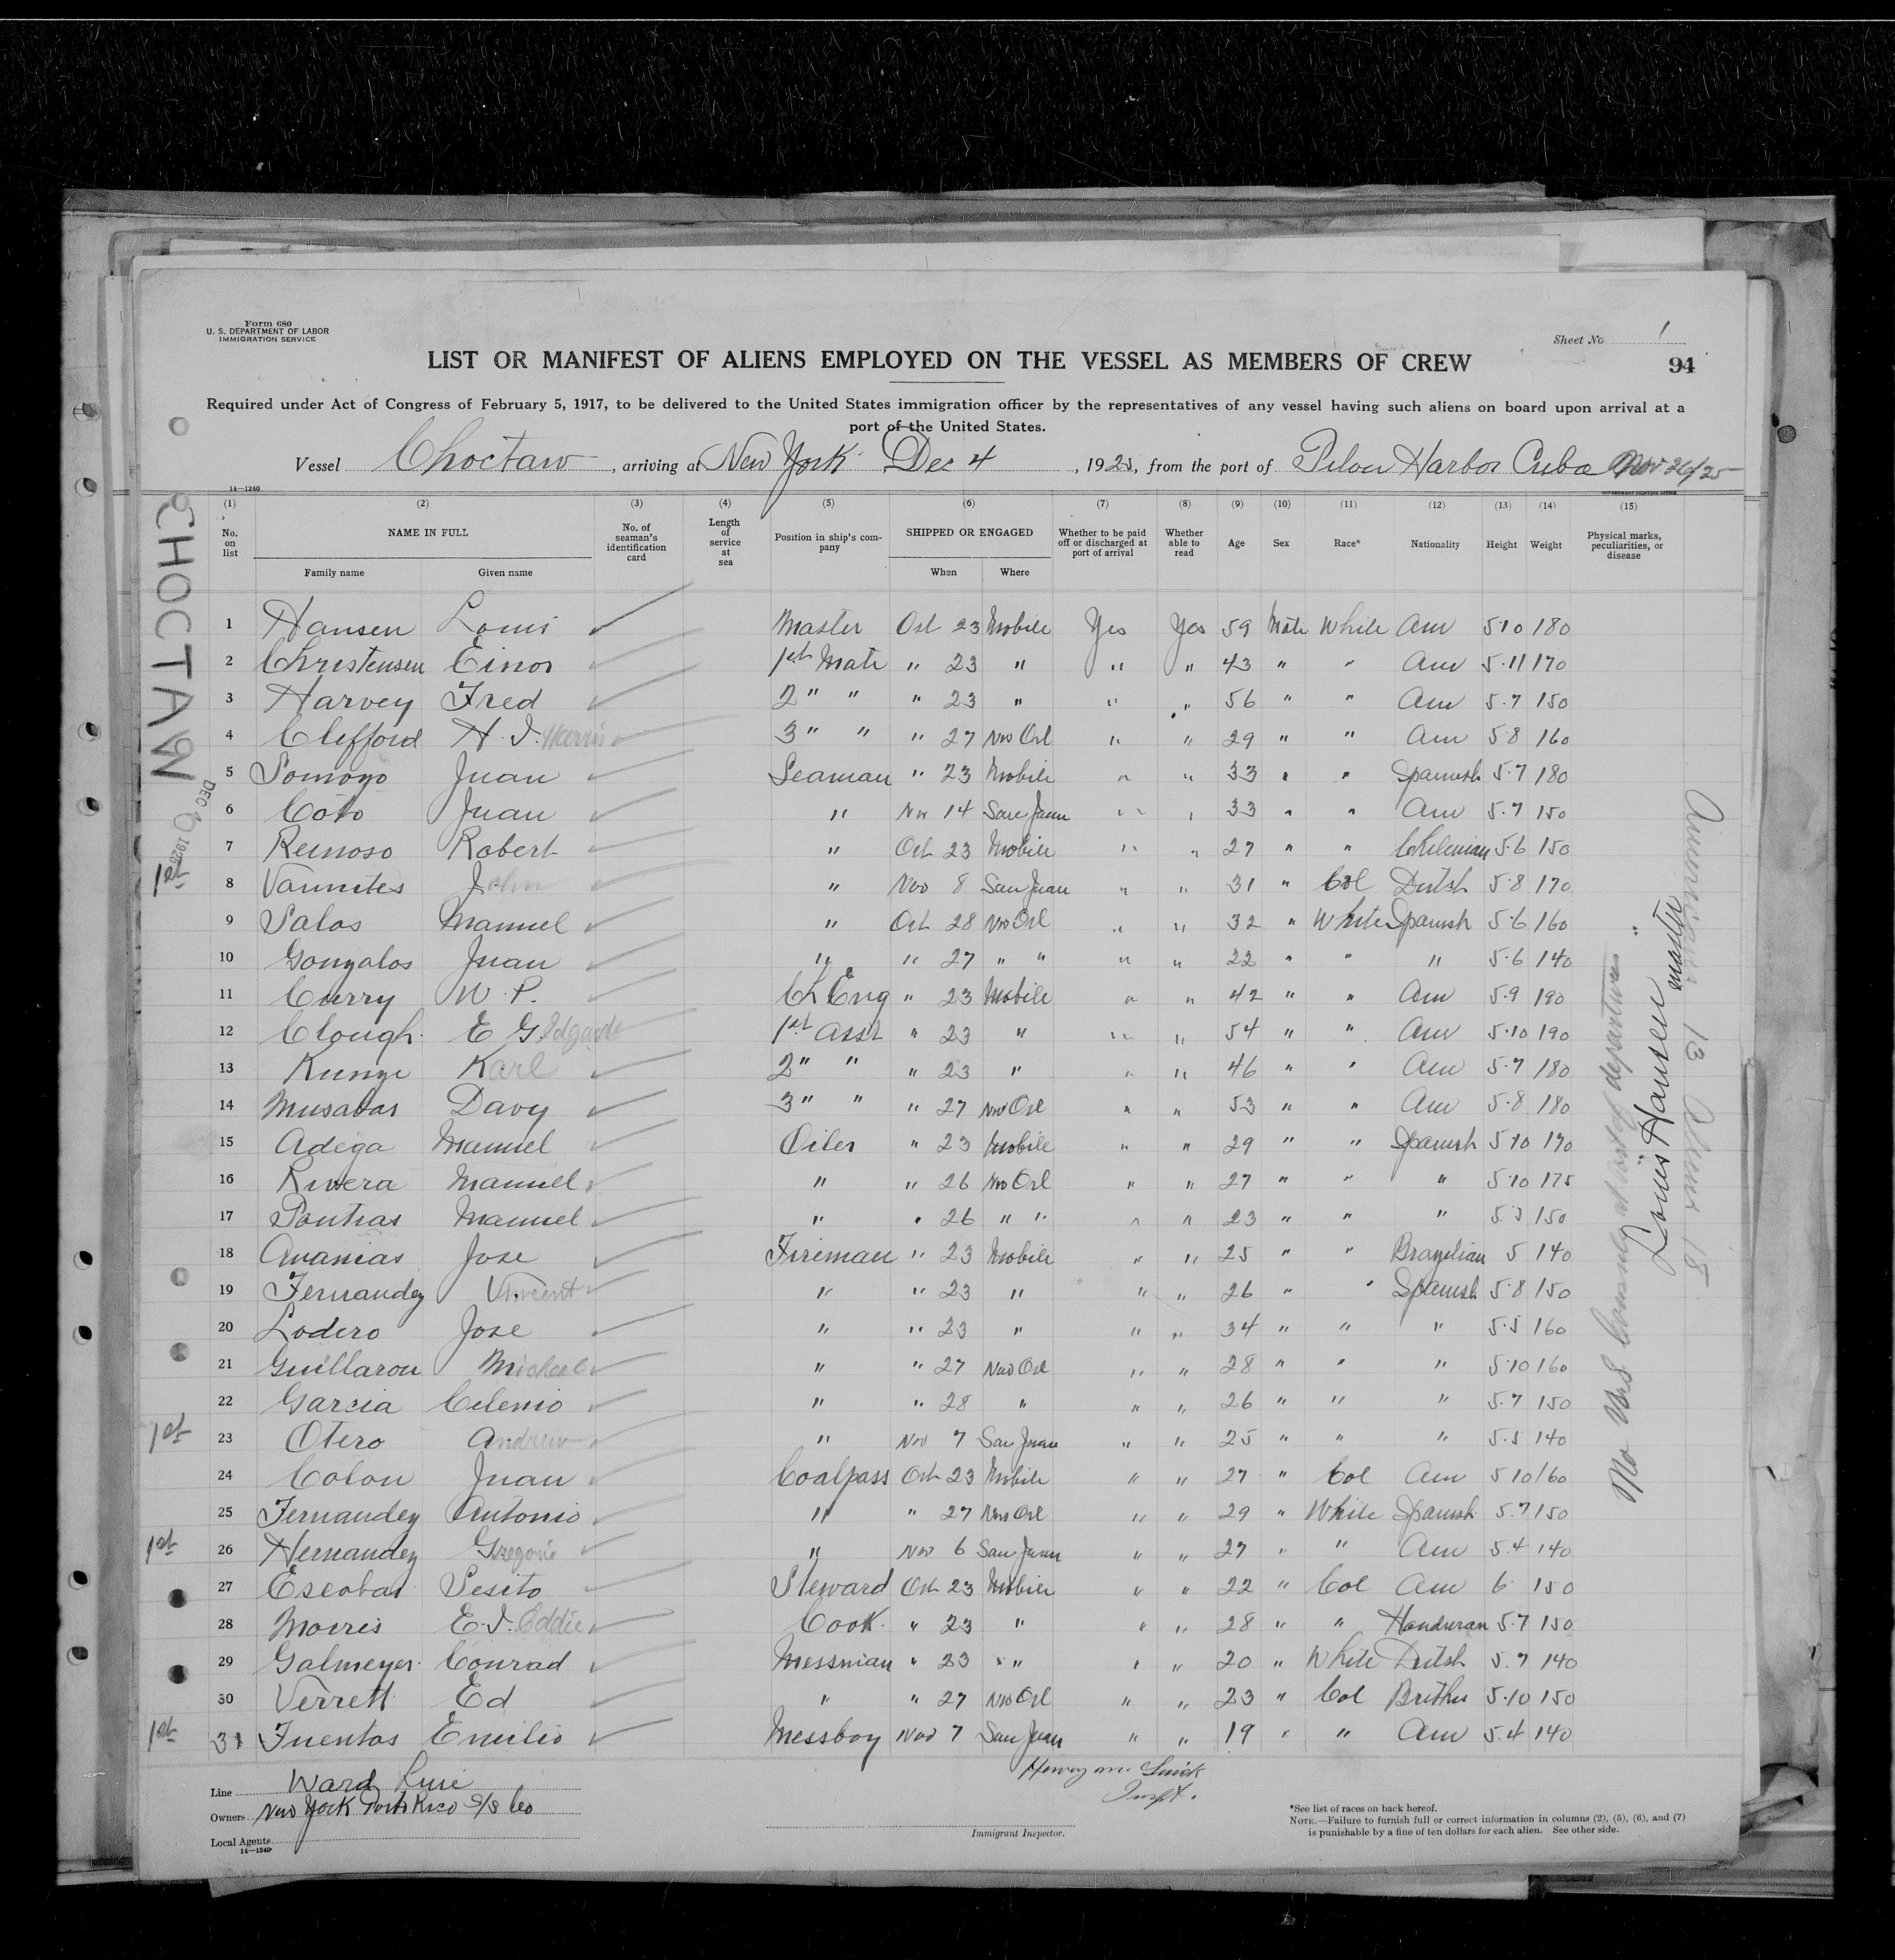 Form 680
U. S. DEPARTMENT OF LABOR
IMMIGRATION SERVICE
Sheet No. 1
94
LIST OR MANIFEST OF ALIENS EMPLOYED ON THE VESSEL AS MEMBERS OF CREW
Required under Act of Congress of February 5, 1917, to be delivered to the United States immigration officer by the representatives of any vessel having such aliens on board upon arrival at a
port of the United States.
Vessel Choctaw, arriving at New York Dec 4, 1925, from the port of Pilon Harbor Cuba Nov 26/25
14—1240 GOVERNMENT PRINTING OFFICE
(1) (2) (3) (4) (5) (6) (7) (8) (9) (10) (11) (12) (13) (14) (15)
No. on list NAME IN FULL No. of seaman's identification card Length of service at sea Position in ship's company SHIPPED OR ENGAGED Whether to be paid off or discharged at port of arrival Whether able to read Age Sex Race* Nationality Height Weight Physical marks, peculiarities, or disease
Family name Given name When Where
1 Hansen Louis Master Oct 23 Mobile Yes Yes 59 Male White Am 5·10 180
2 Christensen Einor 1st Mate " 23 " " " 43 " " Am 5·11 170
3 Harvey Fred 2" " " 23 " " " 56 " " Am 5·7 150
4 Clifford H. I. Harris 3" " " 27 Nw Orl " " 29 " " Am 5 8 160
5 Somoyo Juan Seaman " 23 Mobile " " 33 " " Spanish 5·7 180
6 Coto Juan " Nov 14 San Juan " " 33 " " Am 5·7 150
7 Reinoso Robert " Oct 23 Mobile " " 27 " " Chilenian 5·6 150
8 Vannites John " Nov 8 San Juan " " 31 " Col Dutsh 5·8 170
9 Salos Manuel " Oct 28 Nw Orl " " 32 " White Spanish 5·6 160
10 Gonzalos Juan " " 27 " " " " 22 " " " 5·6 140
11 Curry W. P. Ch Eng " 23 Mobile " " 42 " " Am 5·9 190
12 Clough E G. Edgard 1st Asst " 23 " " " 54 " " Am 5·10 190
13 Kunze Karl 2" " " 23 " " " 46 " " Am 5·7 180
14 Musabas Davy 3" " " 27 Nw Orl " " 53 " " Am 5·8 180
15 Adega Manuel Oiler " 23 Mobile " " 29 " " Spanish 5·10 170
16 Rivera Manuel " " 26 Nw Orl " " 27 " " " 5·10 175
17 Pontias Manuel " " 26 " " " " 23 " " " 5·3 150
18 Ananias Jose Fireman " 23 Mobile " " 25 " " Brazilian 5 140
19 Fernandez Vincent " " 23 " " " 26 " " Spanish 5·8 150
20 Lodero Jose " " 23 " " " 34 " " " 5·5 160
21 Guillarou Michael " " 27 Nw Orl " " 28 " " " 5·10 160
22 Garcia Celenio " " 28 " " " 26 " " " 5·7 150
23 Otero Andrew " Nov 7 San Juan " " 25 " " " 5·5 140
24 Colon Juan Coalpass Oct 23 Mobile " " 27 " Col Am 5 10 160
25 Fernandez Antonio " " 27 Nw Orl " " 29 " White Spanish 5·7 150
26 Hernandez Gregorie " Nov 6 San Juan " " 27 " " Am 5·4 140
27 Escobar Sesito Steward Oct 23 Mobile " " 22 " Col Am 6 150
28 Morris E. I. Eddie Cook " 23 " " " 28 " " Honduran 5·7 150
29 Galmeyer Conrad Messman " 23 " " " 20 " White Dutsh 5·7 140
30 Verrett Ed " " 27 Nw Orl " " 23 " Col Brithis 5·10 150
31 Fuentos Emilio Messboy Nov 7 San Juan " " 19 " " Am 5·4 140
CHOCTAW
DEC 1925
1st
1st
1st
1st
Louis Hansen master
Americans 13 Aliens 18
Line Ward Line
Owners New York Porto Rico S/S Co
Local Agents
14—1240
Inspt.
Immigrant Inspector.
*See list of races on back hereof.
NOTE.—Failure to furnish full or correct information in columns (2), (5), (6), and (7)
is punishable by a fine of ten dollars for each alien. See other side.